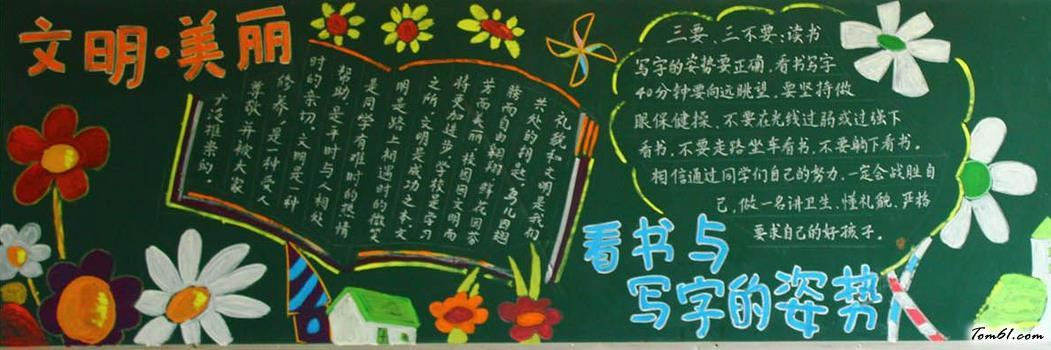 文明·美丽
礼貌和文明是我们
共处的钥匙，鸟儿因翅
膀而自由翱翔，鲜花因芬
芳而美丽，校园因文明而
将更加进步。学校是学习
之所，文明是成功之本。文
明是路上相遇时的微笑
是同学有难时的热情
帮助是平时与人相处
时的亲切。文明是一种
修养，是一种受人
尊敬，并被大家
广泛推崇的。
三要、三不要：读书
写字的姿势要正确，看书写字
40分钟要向远眺望，要坚持做
眼保健操，不要在光线过弱或过强下
看书，不要走路坐车看书，不要躺下看书。
相信通过同学们自己的努力，一定会战胜自
己，做一名讲卫生、懂礼貌、严格
要求自己的好孩子。
看书与
写字的姿势
Tom61.com